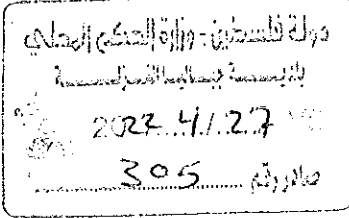 دولة فلسطين - وزارة الحكم المحلي
بلديـــة
2022/4/27
صادر رقم 305